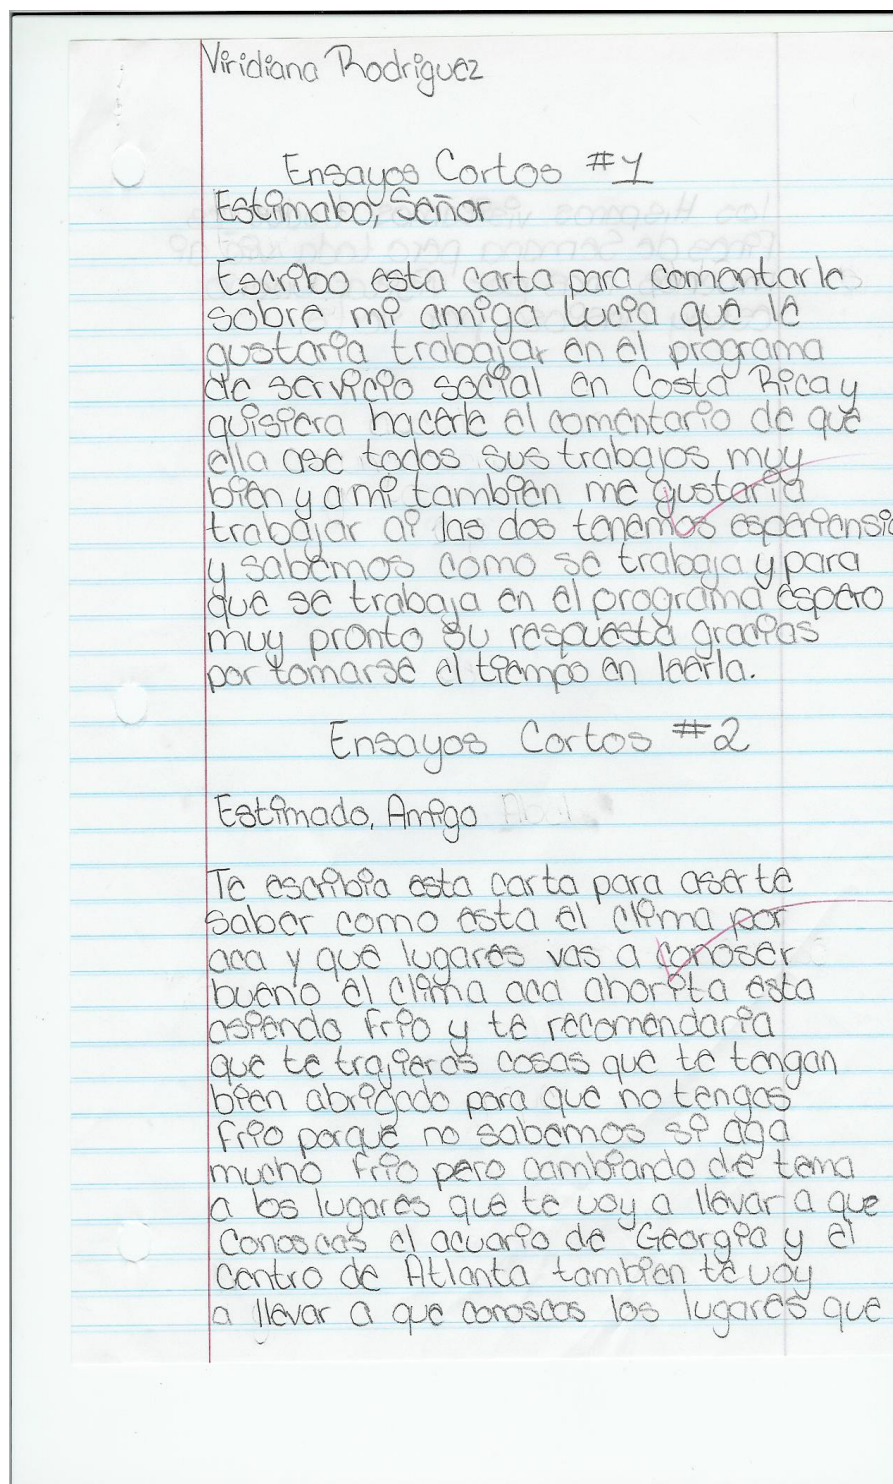 Viridiana Rodriguez
Ensayos Cortos #1
Estimabo, Señor
Escribo esta carta para comentarle
sobre mi amiga Lucia que le
gustaria trabajar en el programa
de servicio social en Costa Rica y
quisiera hacerle el comentario de que
ella ase todos sus trabajos muy
bien y a mi tambien me gustaria
trabajar ai las dos tenemos esperiensia
y sabemos como se trabaja y para
que se trabaja en el programa espero
muy pronto su respuesta gracias
por tomarse el tiempo en leerla.
Ensayos Cortos #2
Estimado, Amigo
Te escribia esta carta para aserte
saber como esta el clima por
aca y que lugares vas a conoser
bueno el clima aca ahorita esta
asiendo frio y te recomendaria
que te trajieras cosas que te tengan
bien abrigado para que no tengas
frio porque no sabemos si aga
mucho frio pero cambiando de tema
a los lugares que te voy a llevar a que
conoscas el acuario de Georgia y el
centro de Atlanta tambien te voy
a llevar a que conoscas los lugares que